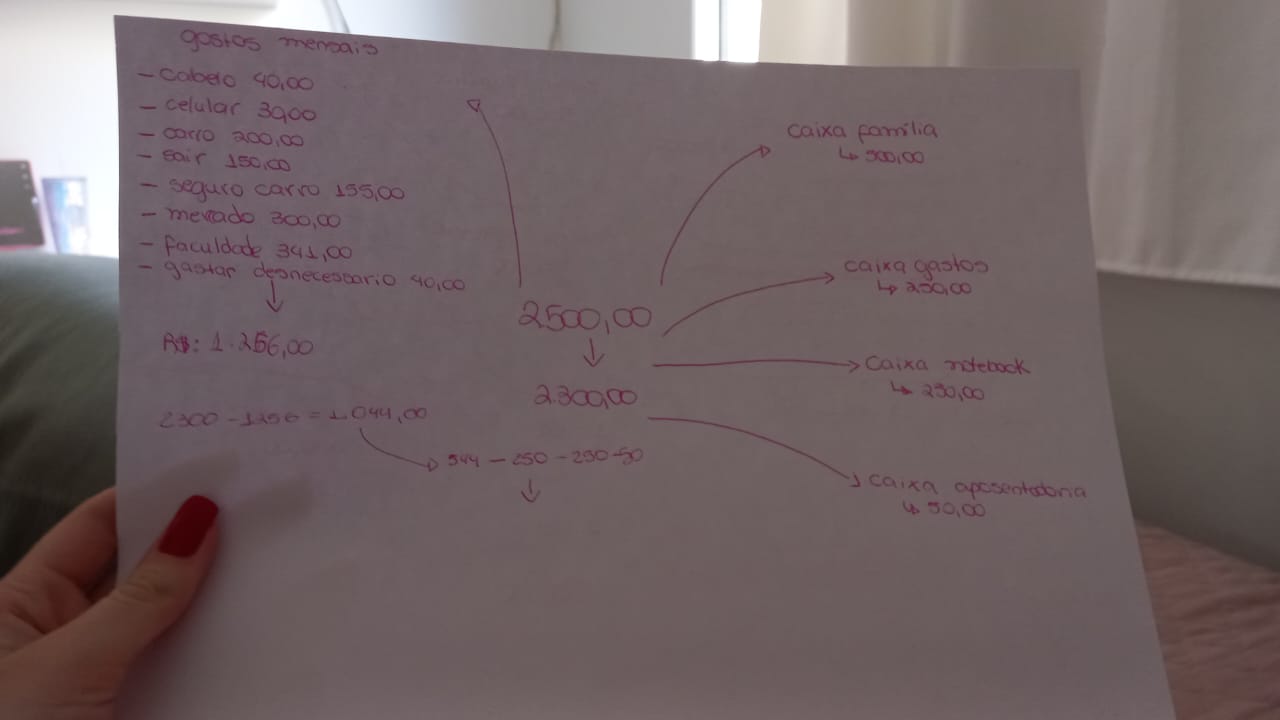 gastos mensais
- cabelo 40,00
- celular 30,00
- carro 200,00
- sair 150,00
- seguro carro 155,00
- mercado 300,00
- faculdade 341,00
- gastar desnecessario 40,00
R$: 1.256,00
2300 - 1256 = 1.044,00
2500,00
2.300,00
544 - 250 - 250 - 50
caixa família
500,00
caixa gastos
250,00
caixa notebook
250,00
caixa aposentadoria
50,00